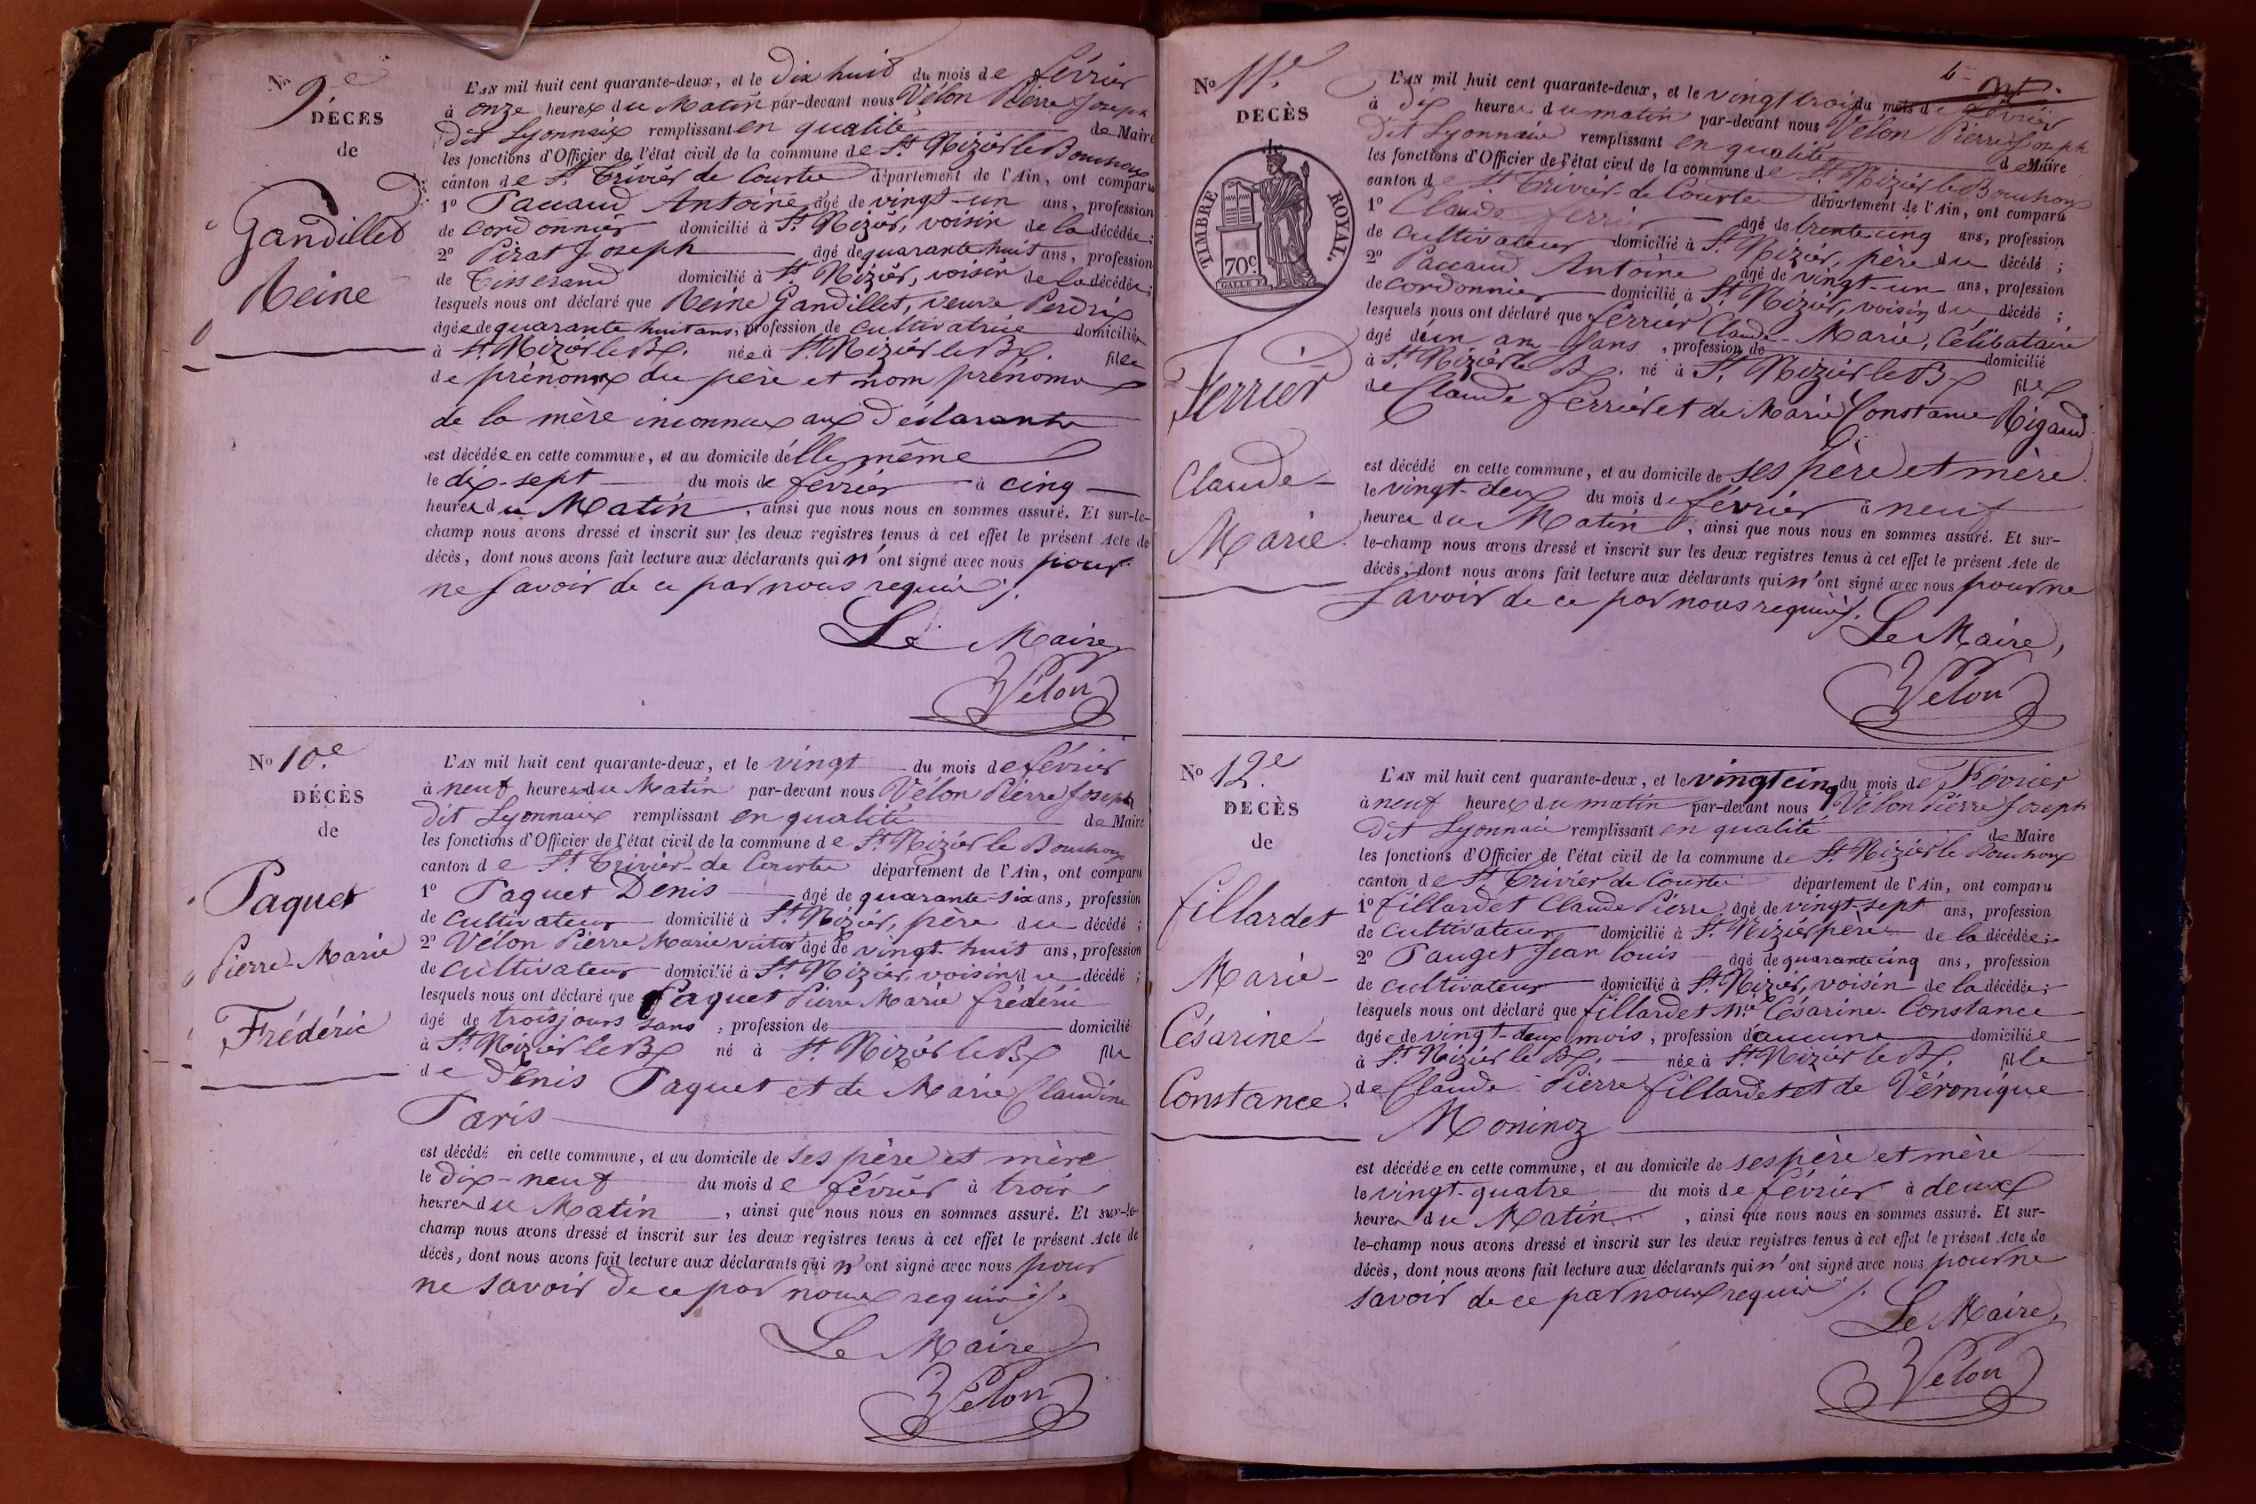 No 9e
DÉCÈS
de
Gandillet
Reine
L'AN mil huit cent quarante-deux, et le dix huit du mois de février
à onze heures du Matin par-devant nous Vélon Pierre Joseph
dit Lyonnais remplissant en qualité de Maire
les fonctions d'Officier de l'état civil de la commune de St Nizier le Bouchoux
canton de St Trivier de Courtes département de l'Ain, ont comparu
1o Paccaud Antoine âgé de vingt-un ans, profession
de cordonnier domicilié à St Nizier, voisin de la décédée;
2o Pirat Joseph âgé de quarante huit ans, profession
de Tisserand domicilié à St Nizier, voisin de la décédée;
lesquels nous ont déclaré que Reine Gandillet, veuve Perdrix
âgée de quarante huit ans, profession de cultivatrice domiciliée
à St Nizier le Bx. née à St Nizier le Bx. fille
de prénoms du père et nom prénoms
de la mère inconnus aux Déclarants
est décédée en cette commune, et au domicile d'elle même
le dix-sept du mois de février à cinq
heures du Matin, ainsi que nous nous en sommes assuré. Et sur-le-
champ nous avons dressé et inscrit sur les deux registres tenus à cet effet le présent Acte de
décès, dont nous avons fait lecture aux déclarants qui n'ont signé avec nous pour
ne savoir de ce par nous requis.
Le Maire
Vélon
No 10.e
DÉCÈS
de
Paquet
Pierre-Marie
Frédéric
L'AN mil huit cent quarante-deux, et le vingt du mois de février
à neuf heures du Matin par-devant nous Vélon Pierre Joseph
dit Lyonnais remplissant en qualité de Maire
les fonctions d'Officier de l'état civil de la commune de St Nizier le Bouchoux
canton de St Trivier-de Courtes département de l'Ain, ont comparu
1o Paquet Denis âgé de quarante-six ans, profession
de cultivateur domicilié à St Nizier, père du décédé;
2o Vélon Pierre Marie Victor âgé de vingt-huit ans, profession
de cultivateur domicilié à St Nizier, voisin du décédé;
lesquels nous ont déclaré que Paquet Pierre Marie frédéric
âgé de trois jours sans, profession de domicilié
à St Nizier le Bx né à St Nizier le Bx fils
de Denis Paquet et de Marie Claudine
Paris
est décédé en cette commune, et au domicile de ses père et mère
le dix-neuf du mois de février à trois
heures du Matin, ainsi que nous nous en sommes assuré. Et sur-le-
champ nous avons dressé et inscrit sur les deux registres tenus à cet effet le présent Acte de
décès, dont nous avons fait lecture aux déclarants qui n'ont signé avec nous pour
ne savoir de ce par nous requis.
Le Maire
Vélon
No 11e
DÉCÈS
de
TIMBRE ROYAL.
70c
Ferrier
Claude-
Marie.
L'AN mil huit cent quarante-deux, et le vingt trois du mois de février
à dix heures du matin par-devant nous Vélon Pierre Joseph
dit Lyonnais remplissant en qualité de Maire
les fonctions d'Officier de l'état civil de la commune de St Nizier le Bouchoux
canton de St Trivier-de Courtes département de l'Ain, ont comparu
1o Claude ferrier âgé de trente cinq ans, profession
de cultivateur domicilié à St Nizier, père du décédé;
2o Paccaud Antoine âgé de vingt-un ans, profession
de cordonnier domicilié à St Nizier, voisin du décédé;
lesquels nous ont déclaré que ferrier Claude-Marie, Célibataire
âgé d'un an sans, profession de domicilié
à St Nizier le Bx. né à St Nizier le Bx fils
de Claude ferrier et de Marie Constance Rigaud
est décédé en cette commune, et au domicile de ses père et mère
le vingt-deux du mois de février à neuf
heures du Matin, ainsi que nous nous en sommes assuré. Et sur-
le-champ nous avons dressé et inscrit sur les deux registres tenus à cet effet le présent Acte de
décès, dont nous avons fait lecture aux déclarants qui n'ont signé avec nous pour ne
savoir de ce par nous requis.
Le Maire,
Vélon
No 12.e
DÉCÈS
de
fillardet
Marie-
Césarine-
Constance.
L'AN mil huit cent quarante-deux, et le vingt cinq du mois de Février
à neuf heures du matin par-devant nous Vélon Pierre Joseph
dit Lyonnais remplissant en qualité de Maire
les fonctions d'Officier de l'état civil de la commune de St Nizier le Bouchoux
canton de St Trivier de Courtes département de l'Ain, ont comparu
1o fillardet Claude Pierre, âgé de vingt-sept ans, profession
de cultivateur domicilié à St Nizier père de la décédée;
2o Pauget Jean Louis âgé de quarante cinq ans, profession
de cultivateur domicilié à St Nizier, voisin de la décédée;
lesquels nous ont déclaré que fillardet Mie Césarine-Constance
âgée de vingt-deux mois, profession d'aucune domiciliée
à St Nizier le Bx. née à St Nizier le Bx. fille
de Claude Pierre fillardet et de Véronique
Moninoz
est décédée en cette commune, et au domicile de ses père et mère
le vingt-quatre du mois de février à deux
heures du Matin, ainsi que nous nous en sommes assuré. Et sur-
le-champ nous avons dressé et inscrit sur les deux registres tenus à cet effet le présent Acte de
décès, dont nous avons fait lecture aux déclarants qui n'ont signé avec nous pour ne
savoir de ce par nous requis.
Le Maire,
Vélon